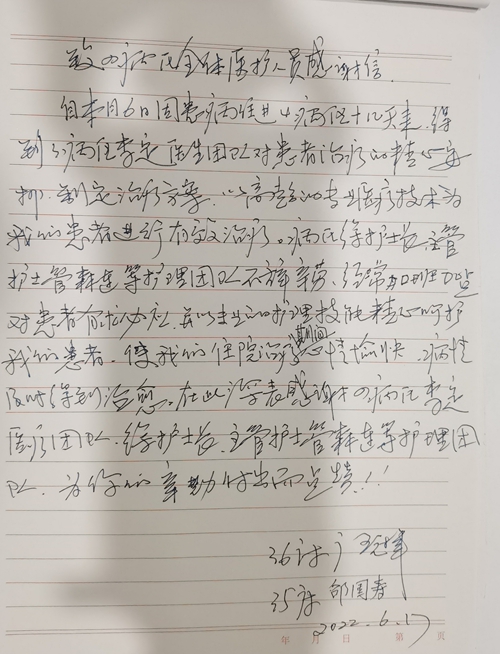 致四病区全体医护人员感谢信.
自本月6日因患病住进四病区十几天来,得
到了病区李定医生团队对患者治疗的精心安
排.制定治疗方案.以高超的专业医疗技术为
我们患者进行有效治疗。病区徐护士长.主管
护士管等护理团队不辞辛劳.经常加班加点
对患者有求必应.并以专业的护理技能精心呵护
我们患者.使我们住院治疗期间心情愉快.病情
及时得到治愈.在此深表感谢四病区李定
医疗团队.徐护士长.主管护士管等护理团
队.为你们的辛勤付出而点赞!!
36床
35床 邹国春
2022.6.17
年 月 日 第 页